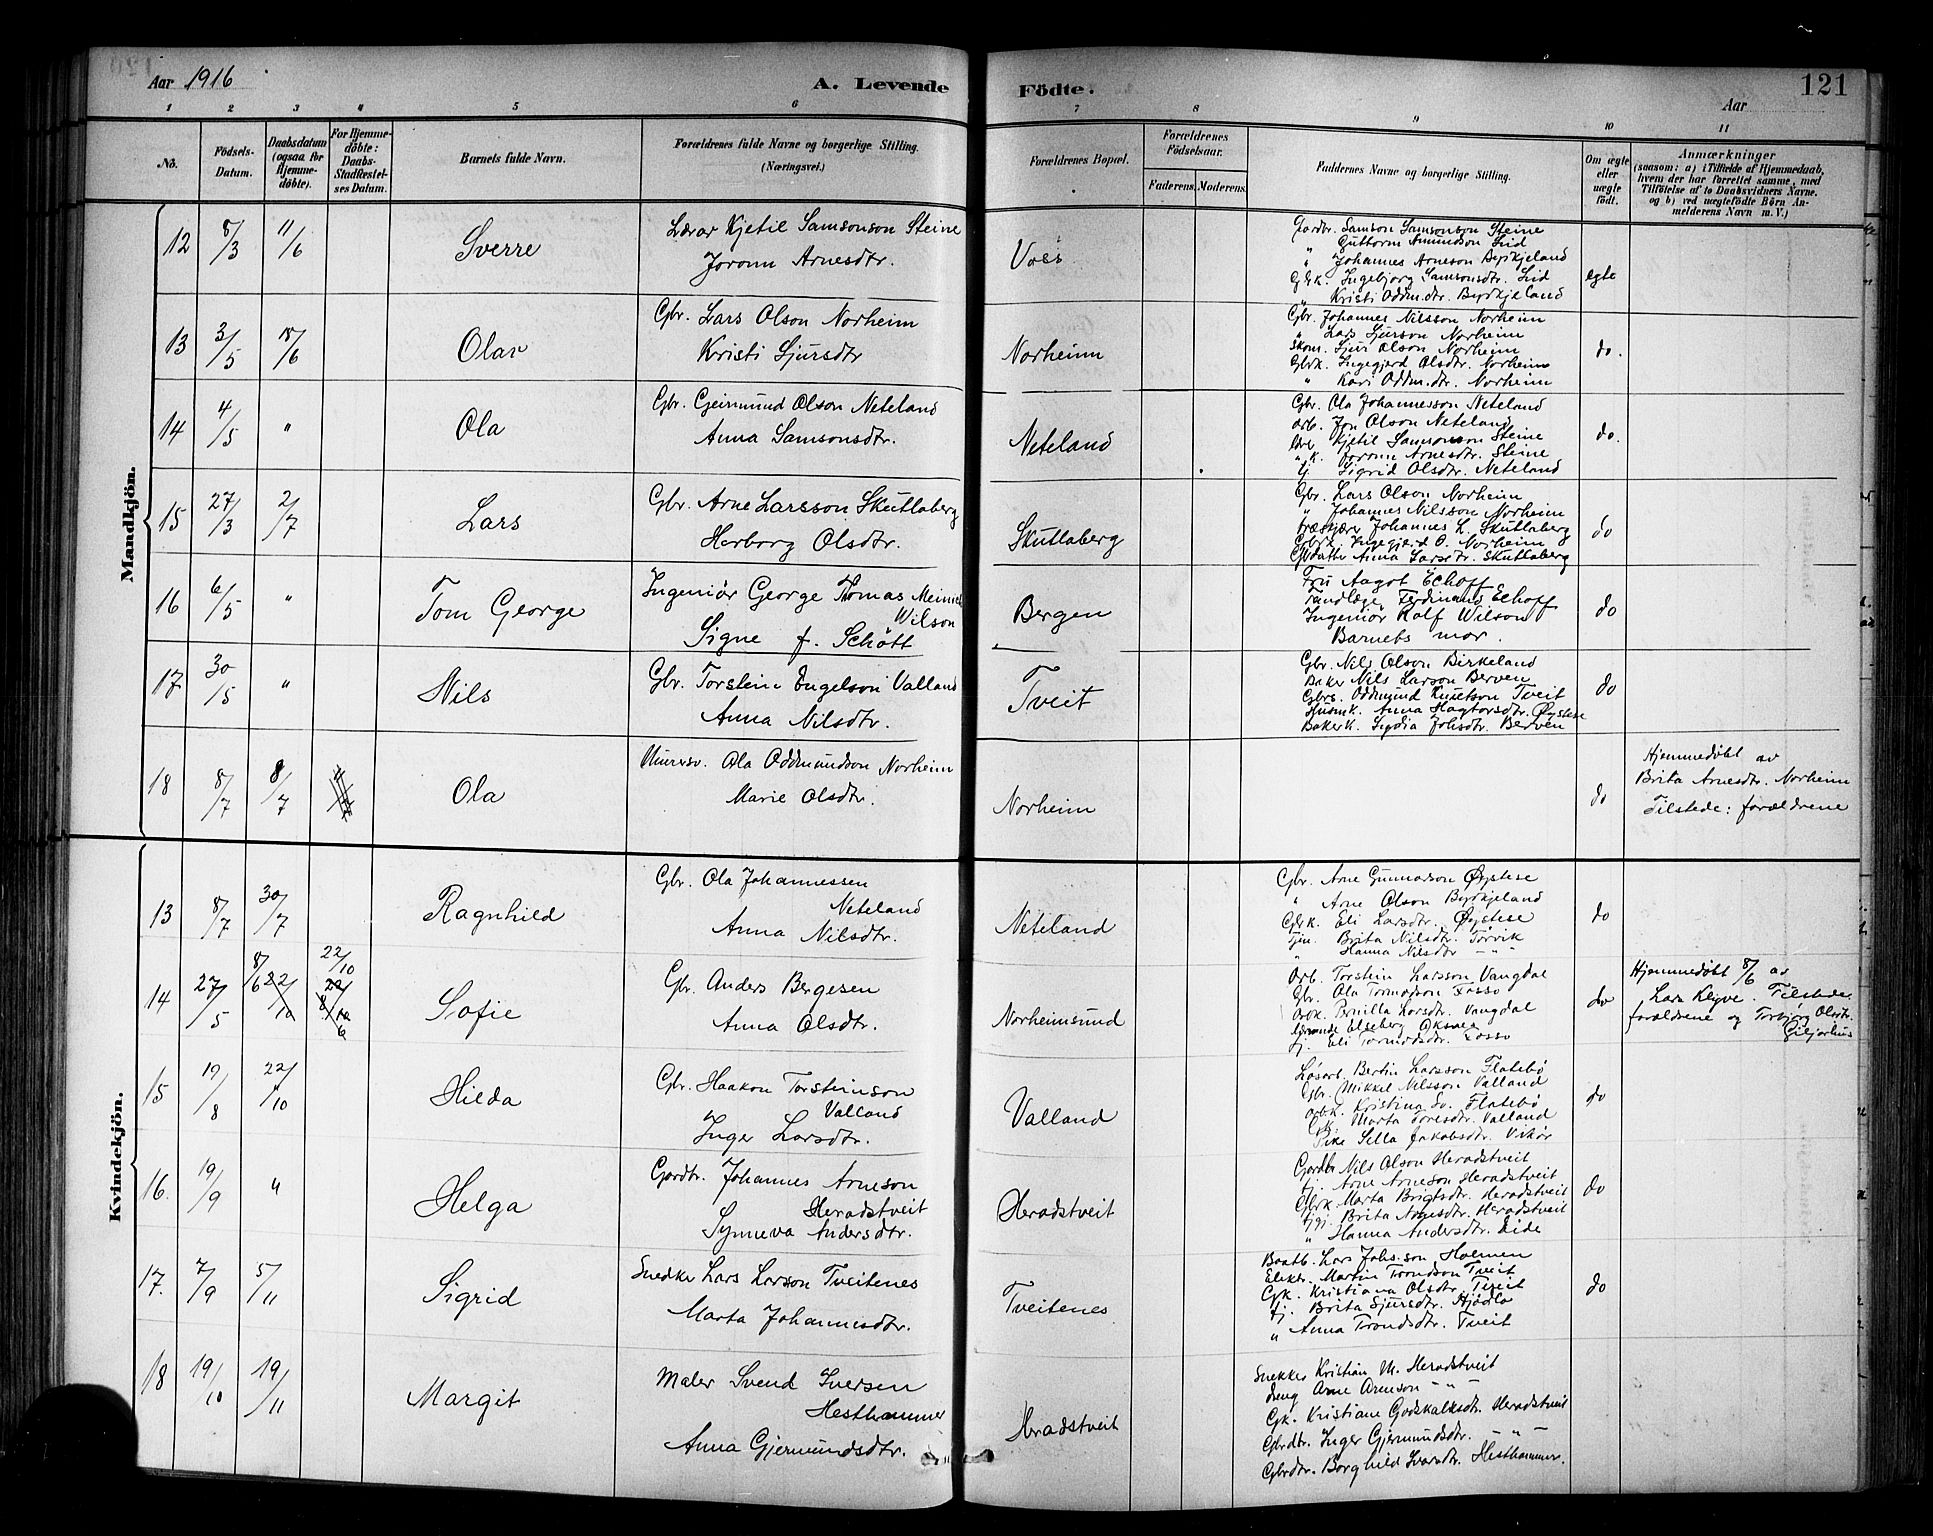 Aar 1916
A. Levende Födte.
Aar
121
1 2 3 4 5 6 7 8 9 10 11
No.
Födsels-Datum.
Daabsdatum (ogsaa for Hjemmedöbte).
For Hjemmedöbte: Daabs-Stadfestelses Datum.
Barnets fulde Navn.
Forældrenes fulde Navne og borgerlige Stilling.
(Næringsvei.)
Forældrenes Bopæl.
Forældrenes Födselsaar.
Faderens. Moderens.
Faddernes Navne og borgerlige Stilling.
Om ægte eller uægte födt.
Anmærkninger
(saasom: a) i Tilfælde af Hjemmedaab, hvem der har forrettet samme, med Tilföielse af to Daabsvidners Navne, og b) ved uægtefödte Börn Anmelderens Navn m. V.)
Mandkjön.
12 8/3 11/6 Sverre
Lærar Kjetil Samsonson Steine
Joronn Arnesdtr.
Voss
Gardbr. Samson Samsonson Steine
" Guttorm Amundson Lid
" Johannes Arneson Byrkjeland
Gbrk. Ingebjorg Samsonsdtr. Lid
" Kristi Oddm.dtr. Byrkjeland
egte
13 3/5 18/6 Olav
Gbr. Lars Olson Norheim
Kristi Sjursdtr
Norheim
Gbr. Johannes Nilsson Norheim
" Lars Sjurson Norheim
Skom. Sjur Olson Norheim
Gbrk. Ingegjerd Olsdtr. Norheim
" Kari Oddm.dtr. Norheim
do.
14 4/5 " Ola
Gbr. Geirmund Olson Neteland
Anna Samsonsdtr.
Neteland
Gbr. Ola Johannesson Neteland
Arb. Jon Olson Neteland
Lær. Kjetil Samsonson Steine
" k. Joronn Arnesdtr. Steine
tj. Sigrid Olsdtr. Neteland
do.
15 27/3 2/7 Lars
Gbr. Arne Larsson Skutlaberg
Herborg Olsdtr.
Skutlaberg
Gbr. Lars Olson Norheim
" Johannes Nilsson Norheim
Træskjærer Johannes L. Skutlaberg
Gbrk. Ingegjerd O. Norheim
Gbdatter Anna Larsdtr. Skutlaberg
do
16 6/5 " Tom George
Ingeniör George Thomas Meinich
Wilson
Signe f. Schött
Bergen
Fru Aagot Echoff
Tandlæge Ferdinand Echoff
Ingeniör Rolf Wilson
Barnets mor.
do
17 30/5 " Nils
Gbr. Torstein Engelson Valland
Anna Nilsdtr.
Tveit
Gbr. Nils Olson Birkeland
Baker Nils Larson Berven
Gbrs. Oddmund Knutson Tveit
Husmk. Anna Hagtorsdtr. Øystese
Bakerk. Lydia Johsdtr. Berven
do
18 8/7 8/7 Ola
Murersv. Ola Oddmundson Norheim
Marie Olsdtr.
Norheim
do
Hjemmedöbt av
Brita Arnesdtr. Norheim
Tilstede: forældrene
Kvindekjön.
13 8/7 30/7 Ragnhild
Gbr. Ola Johannessen
Neteland
Anna Nilsdtr.
Neteland
Gbr. Arne Gunnarson Øystese
" Arne Olson Byrkjeland
Gbrk. Eli Larsdtr. Øystese
Tjen. Brita Nilsdtr. Törvik
" Hanna Nilsdtr - " -
do
14 27/5 8/6 22/10 22/10 Sofie
Gbr. Anders Bergesen
Anna Olsdtr.
Norheimsund
Arb. Torstein Larsson Vangdal
Gbr. Ola Tormodson Fosso
Arbk. Brynilla Larsdtr. Vangdal
Elseberg Oksnes
tj. Eli Tormodsdtr. Fosso
do
Hjemmedöbt 8/6 av
Lars Kleive. Tilstede:
forældrene og Torbjörg Olsdtr.
Giljarhus
15 19/8 22/10 Hilda
Gbr. Haakon Torsteinson
Valland
Inger Larsdtr.
Valland
Løsarb. Bertin Larsson Flatebö
Gbr. Mikkel Nilsson Valland
Arbk. Kristina Sv. Flatebö
Gk. Marta Toresdtr. Valland
Pike Sella Jakobsdtr. Vikör
do
16. 19/9 " Helga
Gardbr. Johannes Arneson
Heradstveit
Synneva Andersdtr.
Heradstveit
Gardbr Nils Olson Heradstveit
tj. Arne Arneson Heradstveit
Gbrk. Marta Brigtsdtr. Heradstveit
tjgj. Brita Arnesdtr. Heradstveit
" Hanna Andersdtr. Eide
do
17. 7/9 5/11 Sigrid
Snedker Lars Larson Tveitenes
Marta Johannesdtr.
Tveitenes
Baatb. Lars Johs.son Holmen
Elektr. Martin Trondson Tveit
Gk. Kristiana Olsdtr. Tveit
tj. Brita Sjursdtr. Mjödlo
" Anna Trondsdtr. Tveit
do
18 19/10 19/11 Margit
Maler Svend Iversen
Hesthammer
Anna Gjermundsdtr.
Heradstveit
Snekker Kristian M. Heradstveit
Dreng Arne Arneson - " -
Gk. Kristiane Godskalksdtr. Heradstveit
Gbrdtr. Inger Gjermundsdtr. - " -
Gbrdtr. Borghild Ivarsdtr. Hesthammer.